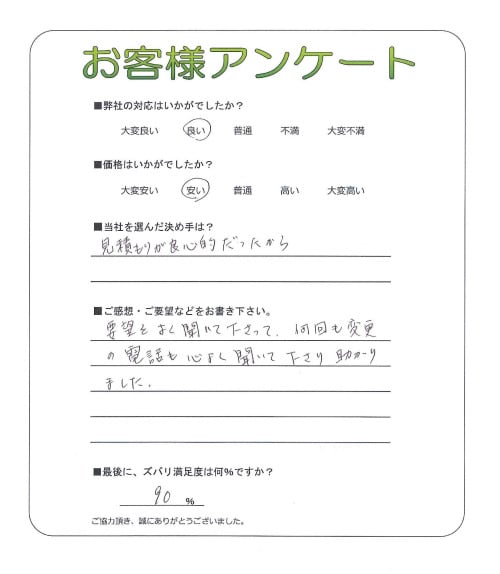 お客様アンケート
■弊社の対応はいかがでしたか？
大変良い 良い 普通 不満 大変不満
■価格はいかがでしたか？
大変安い 安い 普通 高い 大変高い
■当社を選んだ決め手は？
見積もりが良心的だったから
■ご感想・ご要望などをお書き下さい。
要望をよく聞いて下さって、何回も変更
の電話も心よく聞いて下さり助かり
ました。
■最後に、ズバリ満足度は何%ですか？
90 %
ご協力頂き、誠にありがとうございました。